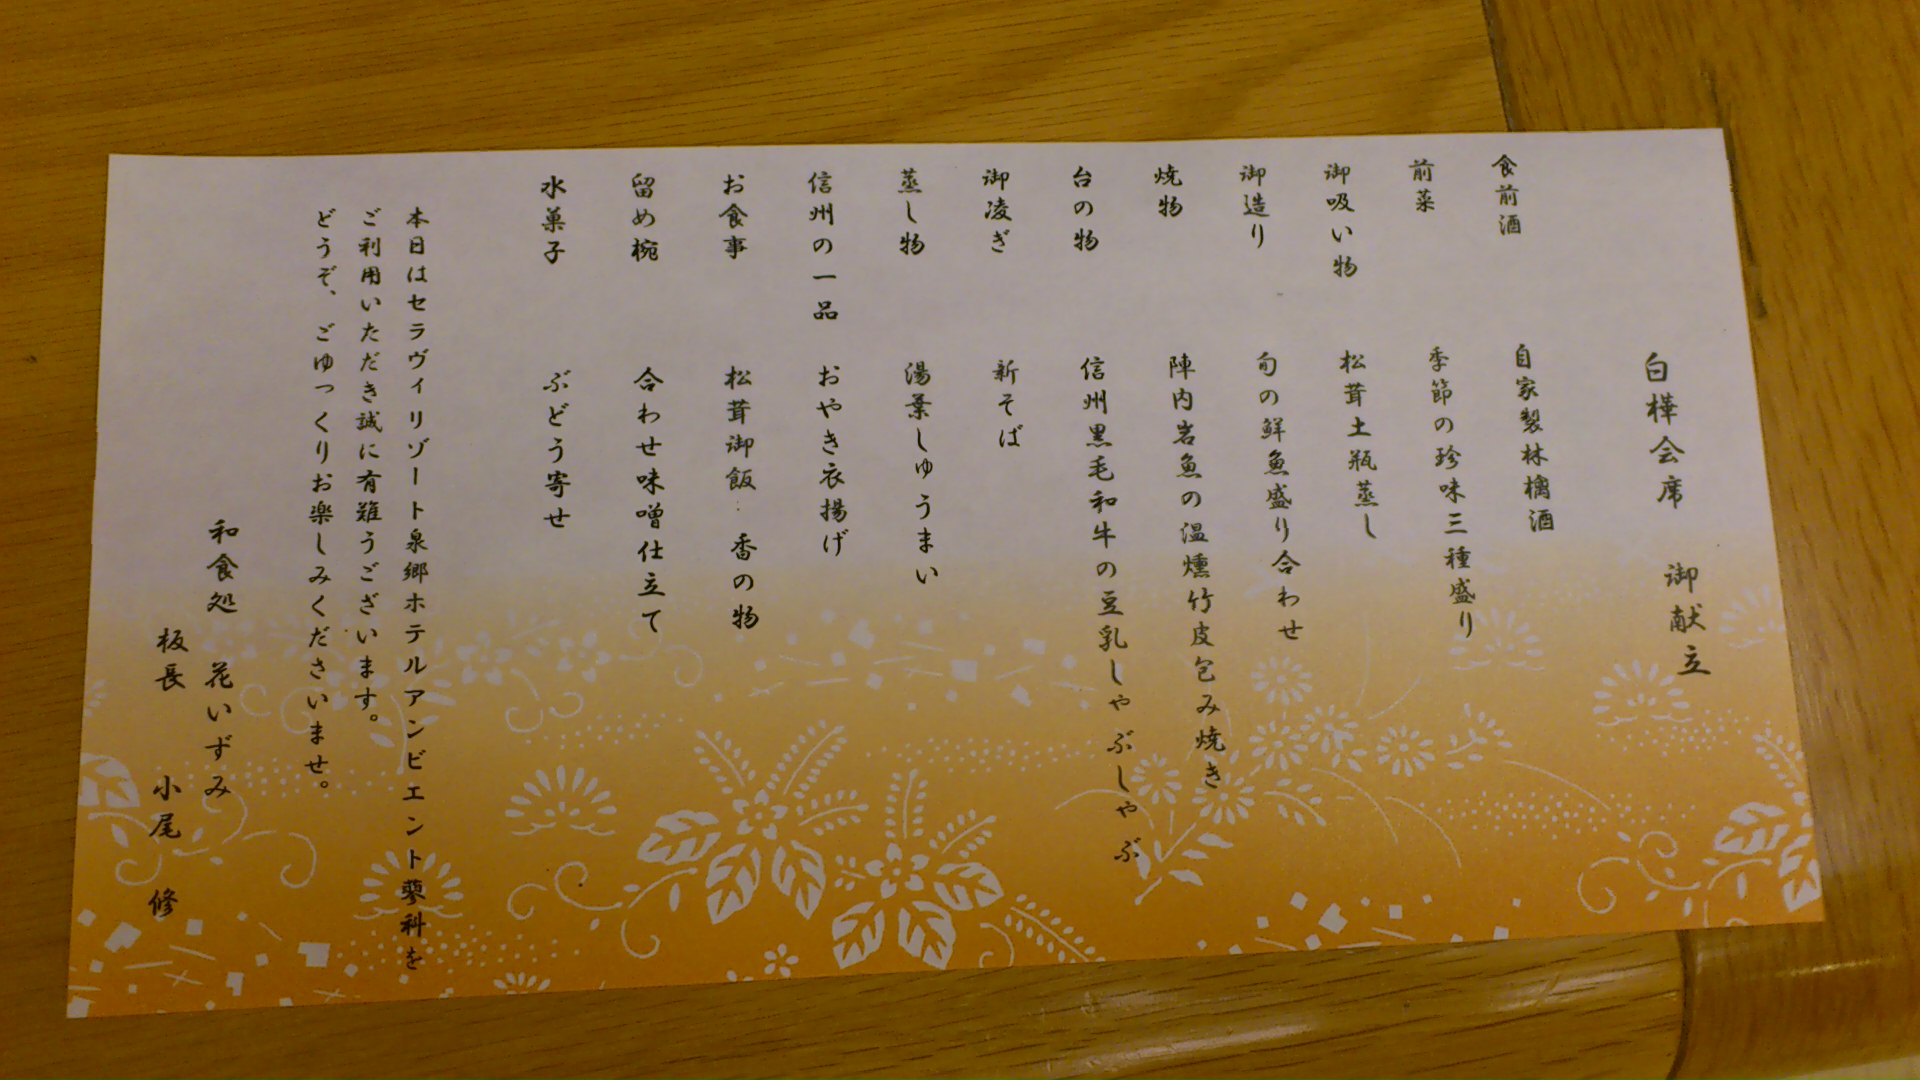 白樺会席　御献立
食前酒　自家製林檎酒
前菜　季節の珍味三種盛り
御吸い物　松茸土瓶蒸し
御造り　旬の鮮魚盛り合わせ
焼物　陣内岩魚の温燻竹皮包み焼き
台の物　信州黒毛和牛の豆乳しゃぶしゃぶ
御凌ぎ　新そば
蒸し物　湯葉しゅうまい
信州の一品　おやき衣揚げ
お食事　松茸御飯　香の物
留め椀　合わせ味噌仕立て
水菓子　ぶどう寄せ
本日はセラヴィリゾート泉郷ホテルアンビエント蓼科を
ご利用いただき誠に有難うございます。
どうぞ、ごゆっくりお楽しみくださいませ。
和食処　花いずみ
板長　小尾　修